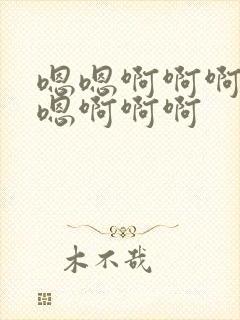 嗯嗯啊啊啊
嗯啊啊啊
木不哉